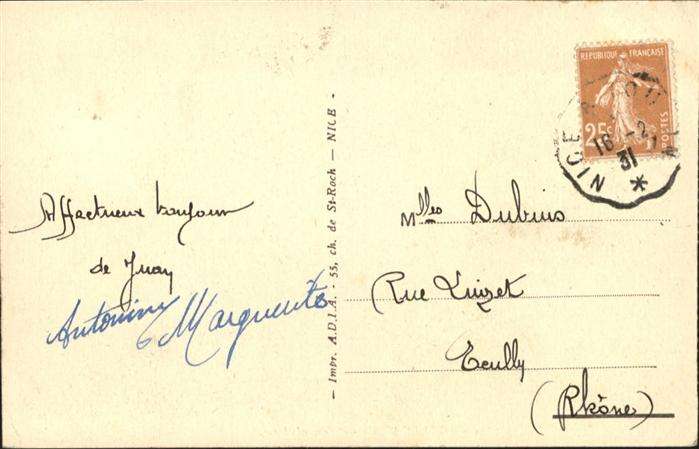 Affectueux bonjour
de
Antonine Marguerite
- Impr. A.D.I.A. - 55, ch. de St-Roch - NICE -
REPUBLIQUE FRANÇAISE
25c
POSTES
NICE
16 -2
31
Mlles Dubuis
Rue Luizet
Ecully
(Rhône)